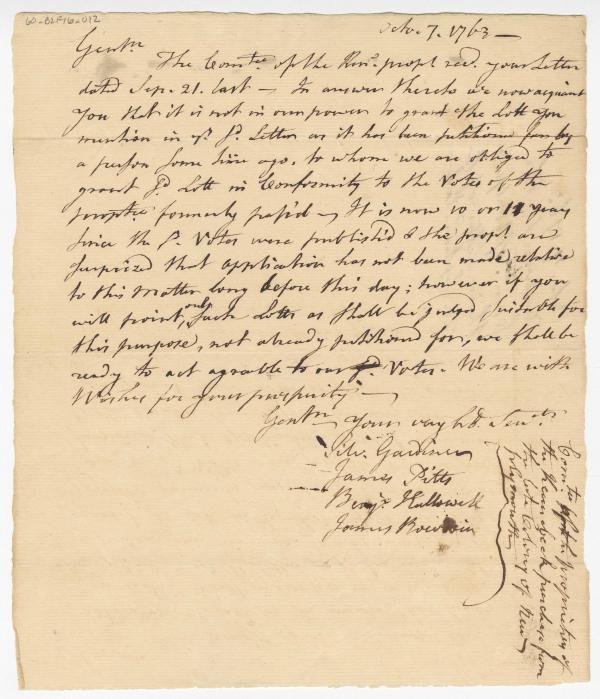 60-B2F16-012
Octo. 7. 1763 —
Gentn
The Comtee of the Kene. propt recd. your Letter
dated Sep. 21. last — In answer thereto we now acquaint
you that it is not in our power to grant the Lott you
mention in yr. sd. Letter as it has been petitioned for by
a person some time ago, to whom we are obliged to
grant sd Lott in Conformity to the Votes of the
proptee formerly pass'd — It is now 10 or 11 years
since the sd. Votes were publish'd & the propt. are
surprized that application has not been made relative
to this matter long before this day; however if you
will point, only such Lotts as shall be judged suitable for
this purpose, not already petitioned for, we shall be
ready to act agreable to our sd. Votes. We are with
Wishes for your prosperity —
Gentn Your very hb. Servts
Silv. Gardiner
James Pitts
Benja. Hallowell
James Bowdoin
Comtee of the propriety of
the Kennebeck purchase from
the late Colony of New
plymouth